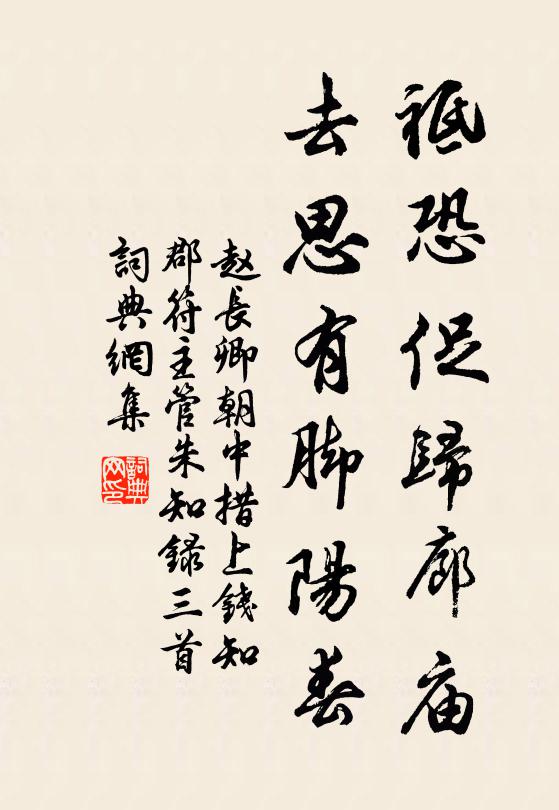 祗恐促歸廊庙
去思有脚陽春
赵長卿朝中措上錢知
郡符主管朱知録三首
詞典網集
詞典网印